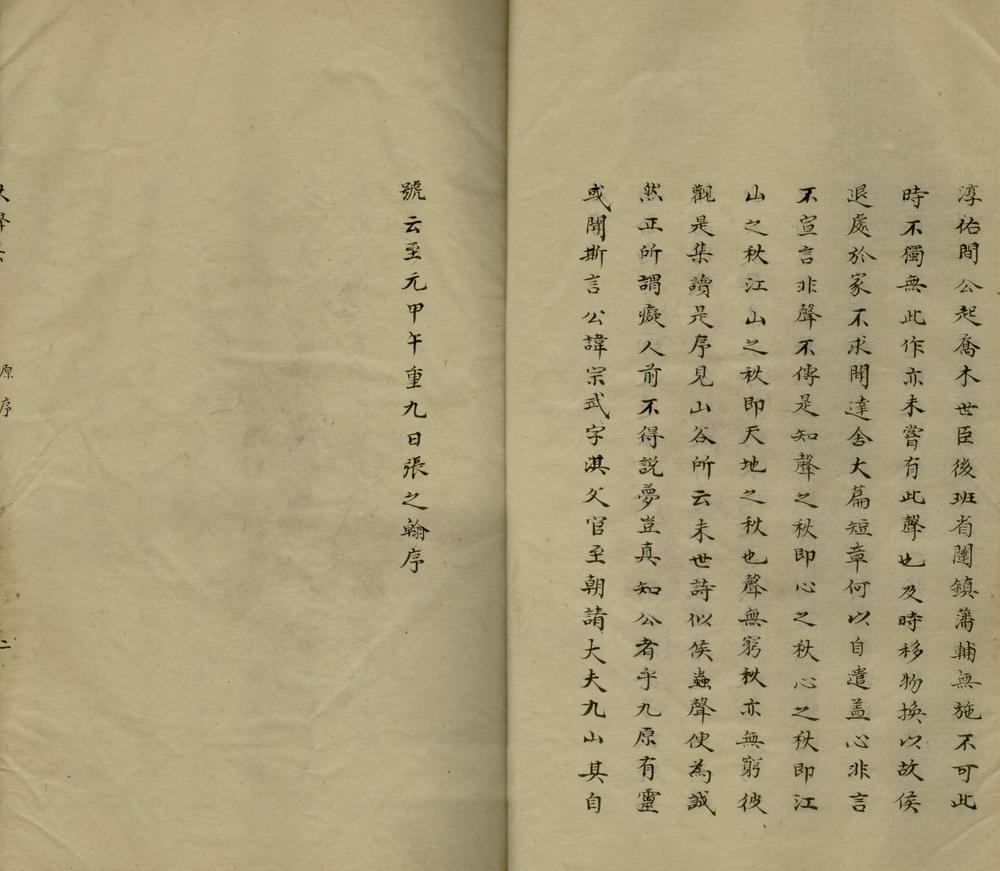 淳祐間公起喬木世臣後班省闥鎮藩輔無施不可此
時不獨無此作亦未嘗有此聲也及時移物換以故侯
退處於家不求聞達舍大篇短章何以自遣盖心非言
不宣言非聲不傳是知聲之秋即心之秋心之秋即江
山之秋江山之秋即天地之秋也聲無窮秋亦無窮彼
觀是集讀是序見山谷所云末世詩似候蟲聲便為誠
然正所謂癡人前不得説夢豈真知公者乎九原有靈
或聞斯言公諱宗武字淇父官至朝請大夫九山其自
號云至元甲午重九日張之翰序
原序
二